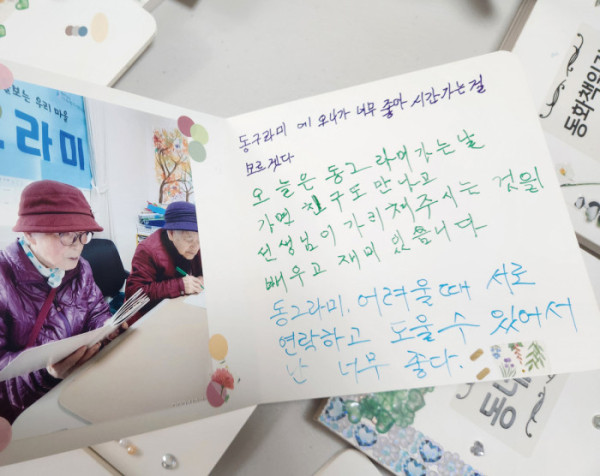 보는 우리 마을
라미
동구라미 에 오니가 너무 좋아 시간가는 걸
모르겟다
오 늘은 동그라미 가는 날
가면 친구도 만나고
선생님이 가리채주시는 것을
배우고 재미 있읍니다
동그라미, 어려울 때 서로
연락하고 도울수 있어서
난 너무 좋다.
동화책읽
동